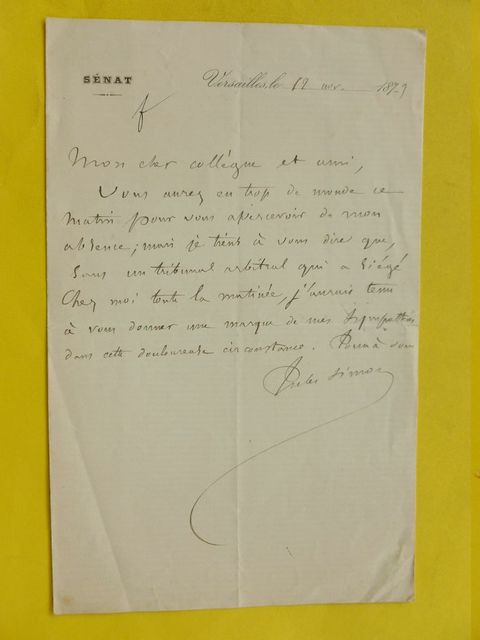 SÉNAT
Versailles, le 12 nov. 1879
Mon cher collègue et ami,
Vous aurez eu trop de monde ce
matin pour vous apercevoir de mon
absence; mais je tiens à vous dire que,
sans un tribunal arbitral qui a siégé
chez moi toute la matinée, j'aurais tenu
à vous donner une marque de mes sympathies
dans cette douloureuse circonstance. à vous
Jules Simon